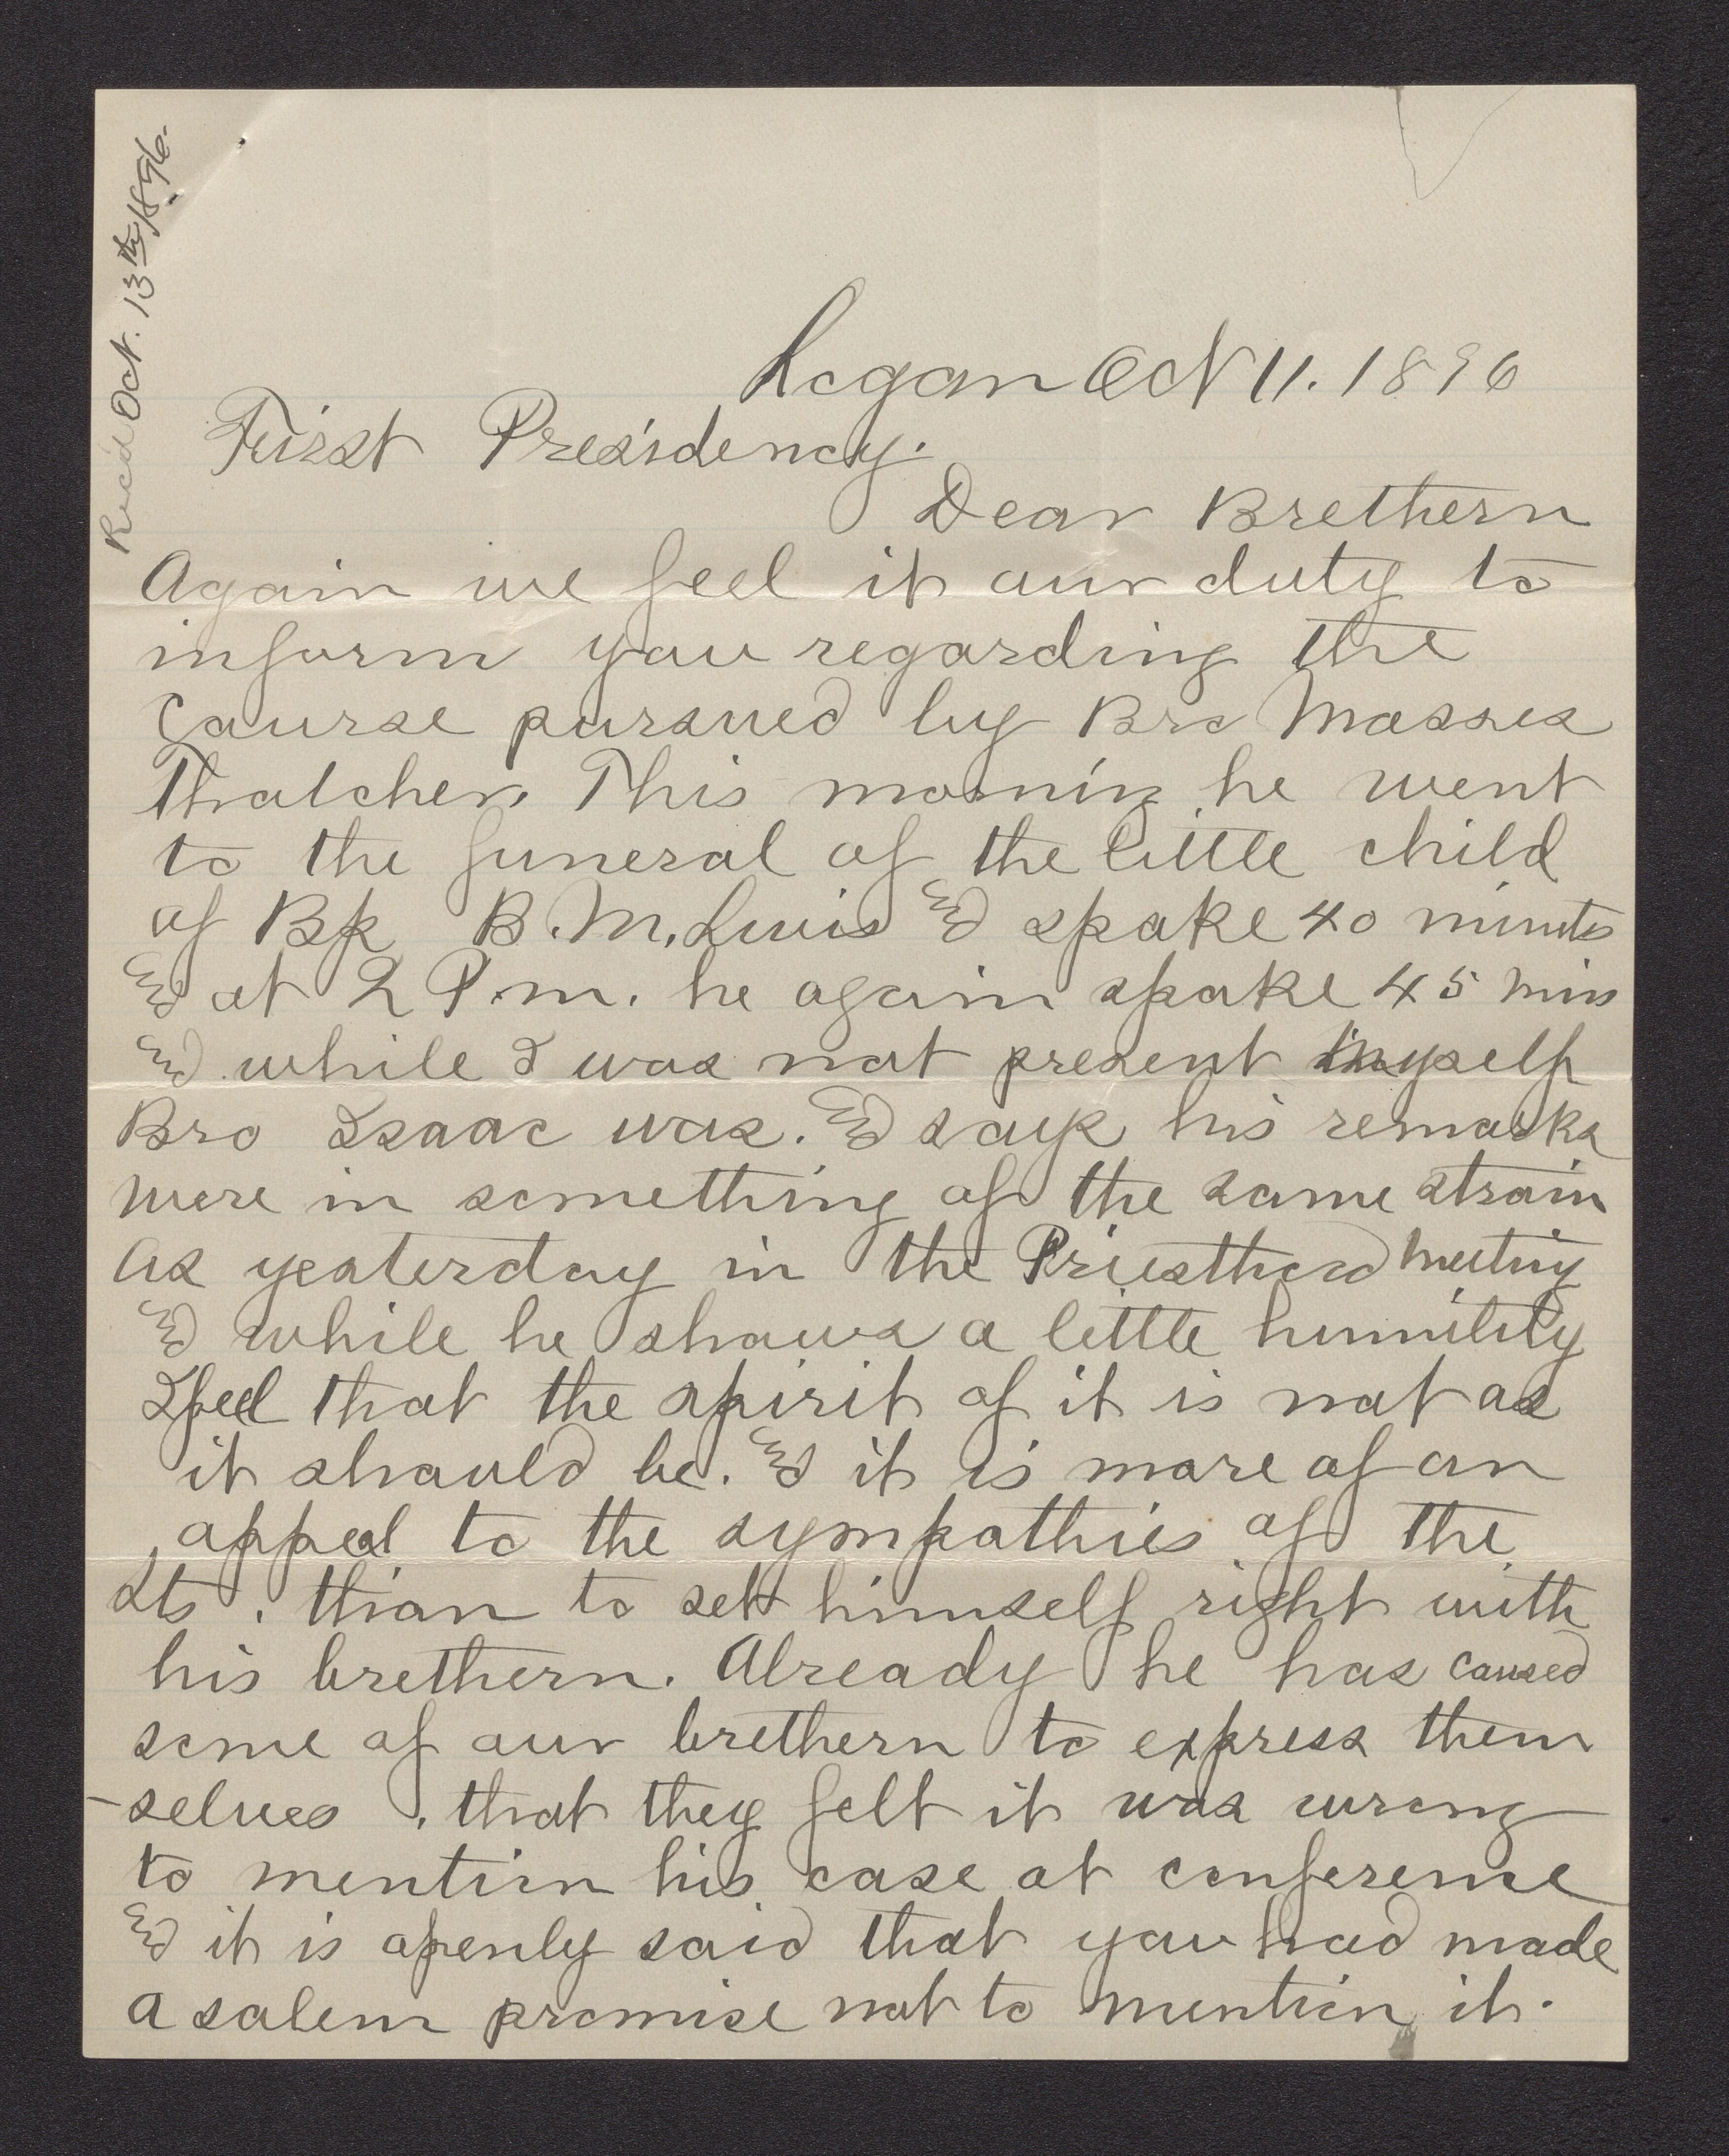 Rec'd Oct. 13th/896.
Logan Oct 11. 1896
First Presidency.
Dear Brethern
Again we feel it our duty to
inform you regarding the
Course pursued by Bro Mosses
Thatcher. This mornin he went
to the funeral of the little child
of Bp B. M. Lewis & spoke 40 minuts
& at 2 P.m. he again spoke 45 mins
& while I was not present myself
Bro Isaac was. & says his remarks
were in something of the same strain
as yesterday in the Priesthood meeting
& while he shows a little humility
I feel that the spirit of it is not as
it should be. & it is more of an
appeal to the sympathies of the
Sts. than to set himself right with
his brethern. Already he has caused
some of our brethern to express them
-selves. that they felt it was wrong
to mention his case at conference
& it is openly said that you had made
a solem promise not to mention it.